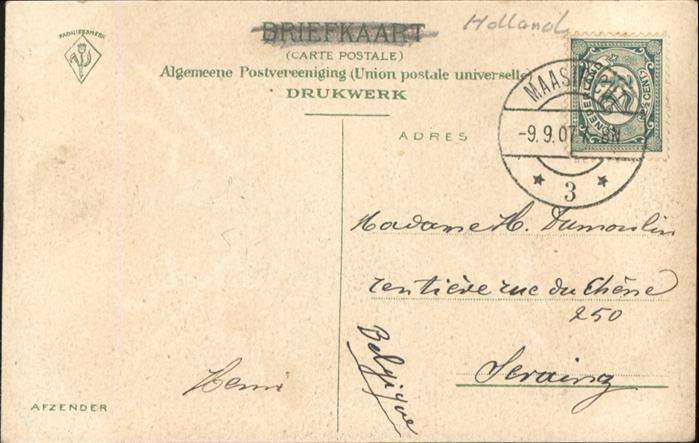 FABRIEKSMERK
BRIEFKAART
Holland
(CARTE POSTALE)
Algemeene Postvereeniging (Union postale universelle)
DRUKWERK
ADRES
-9.9.07
3
Madame H. Dumoulin
rentière rue du Chêne
250
Seraing
Belgique
Henri
AFZENDER